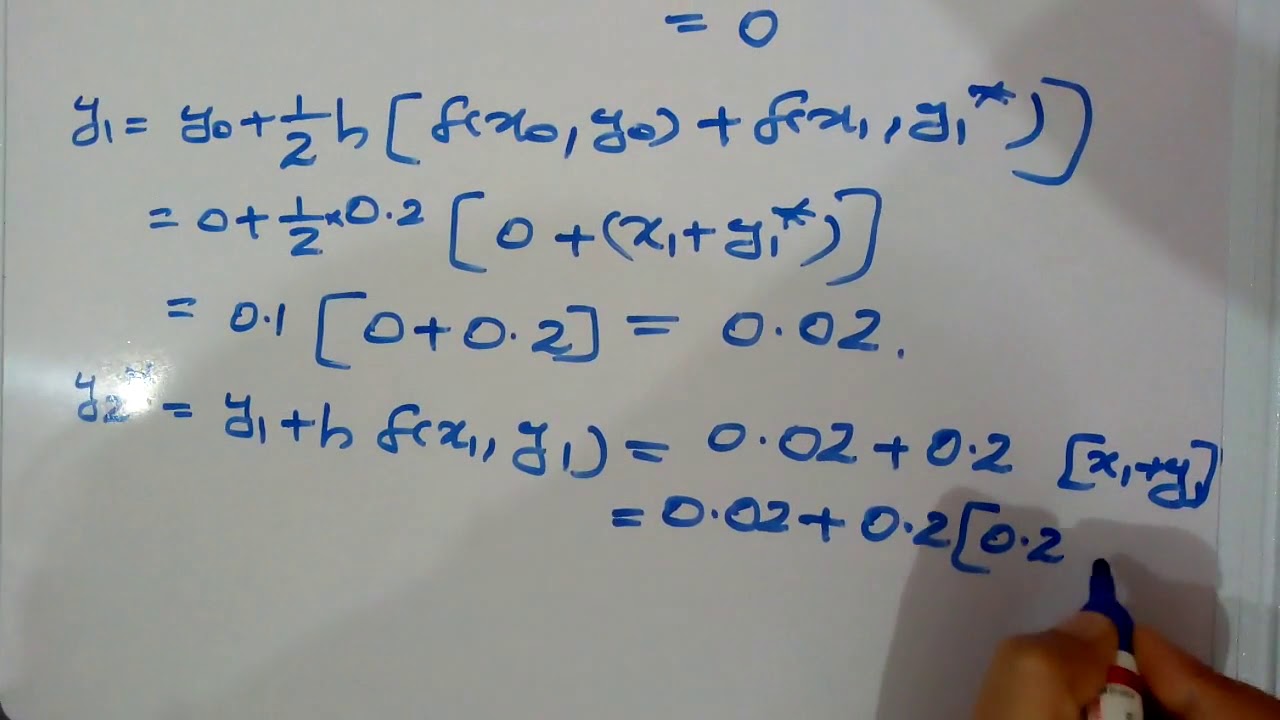 = 0
y₁ = y₀ + 1/2 h [f(x₀, y₀) + f(x₁, y₁*)]
= 0 + 1/2 × 0.2 [0 + (x₁ + y₁*)]
= 0.1 [0 + 0.2] = 0.02.
y₂* = y₁ + h f(x₁, y₁) = 0.02 + 0.2 [x₁ + y₁]
= 0.02 + 0.2 [0.2